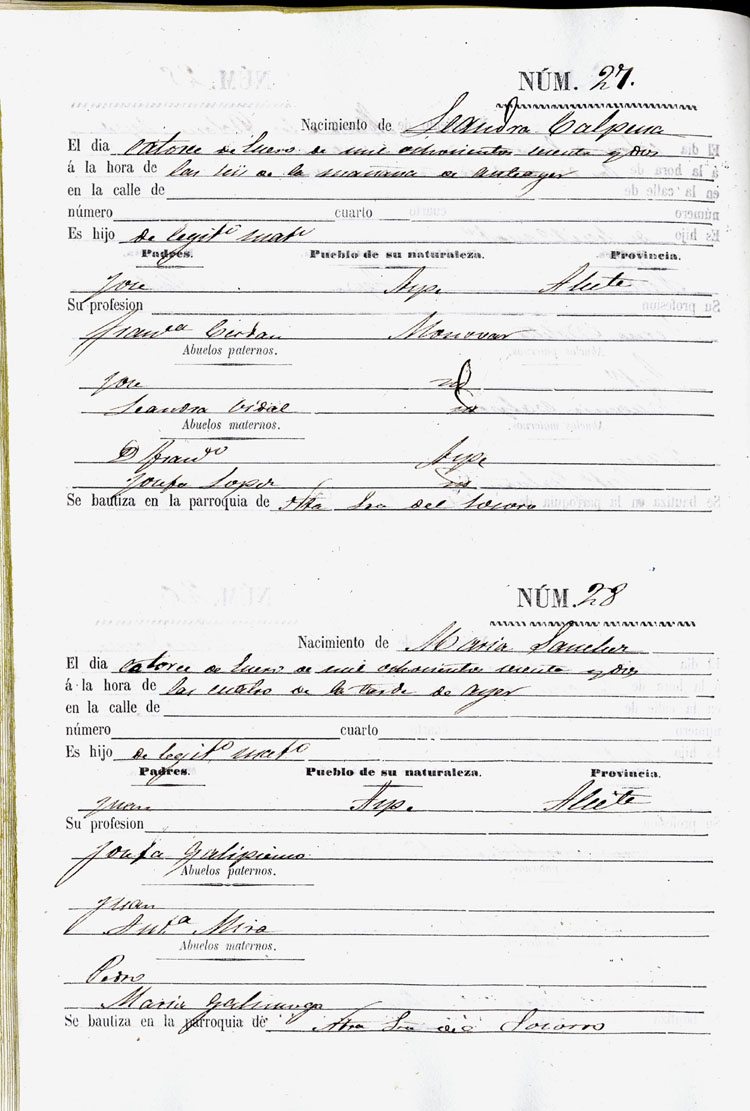 NÚM. 27.
Nacimiento de Leandra Calpena
El dia catorce de Enero de mil ochocientos y dos
á la hora de las seis de la mañana de anteayer
en la calle de
número cuarto
Es hijo de legit.º mat.º
Padres. Pueblo de su naturaleza. Provincia.
Jose Aspe Alicte
Su profesion
Fran.ca Cerdan Monovar
Abuelos paternos.
Jose id
Leandra Vidal id
Abuelos maternos.
D Fran.co Aspe
Josefa Lopez id
Se bautiza en la parroquia de Ntra Sra del Socorro
NÚM. 28
Nacimiento de Maria Sanchez
El dia catorce de Enero de mil ochocientos y dos
á la hora de las cuatro de la tarde de ayer
en la calle de
número cuarto
Es hijo de legit.º mat.º
Padres. Pueblo de su naturaleza. Provincia.
Juan Aspe Alicte
Su profesion
Josefa Galipienso
Abuelos paternos.
Juan
Ant.a Mira
Abuelos maternos.
Pedro
Maria
Se bautiza en la parroquia de Ntra Sra del Socorro